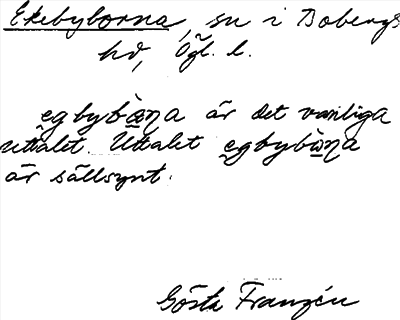 Ekebyborna, sn i Bobergs
hd, Ögl. l.
egbybὼṇa är det vanliga
uttalet. Uttalet egbybὼṇa
är sällsynt.
Gösta Franzén